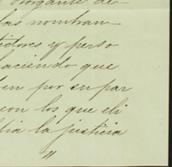 otorgante de
las nombran
tidores y perso
haciendo que
den por su par
con los que eli
dia la justicia
"